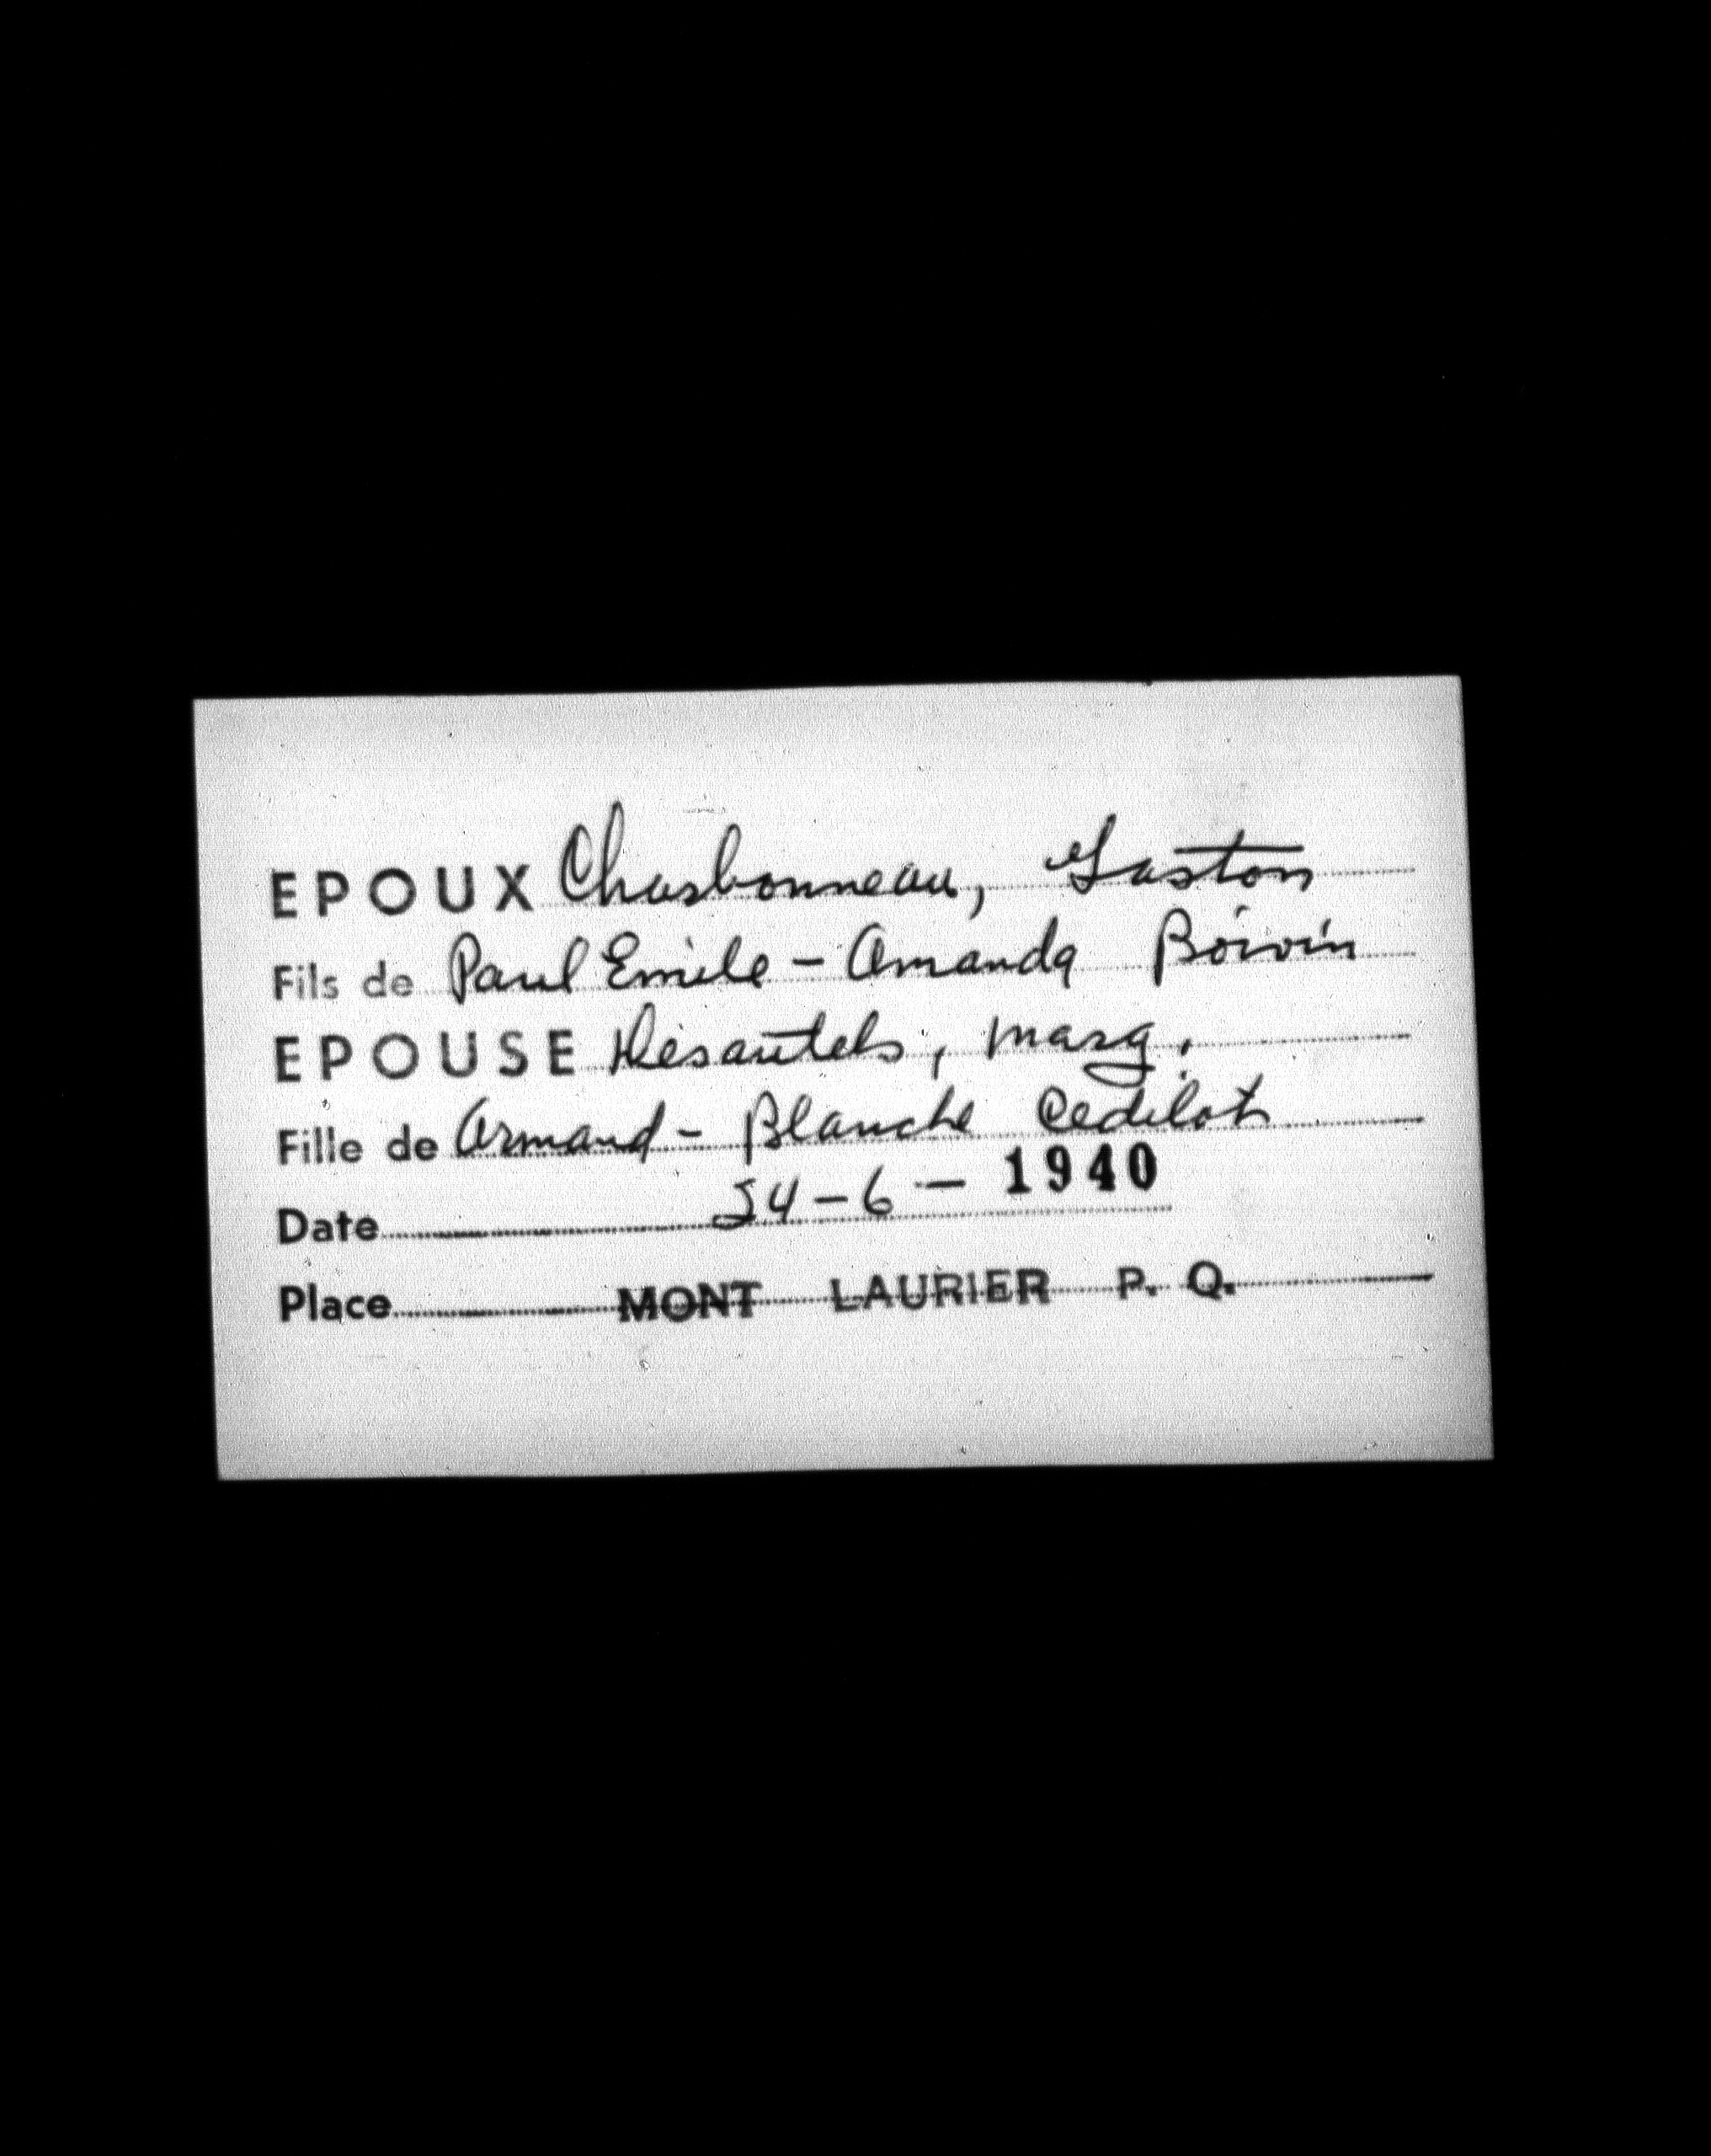 EPOUX Charbonneau, Gaston
Fils de Paul Emile - Amanda Boivin
EPOUSE Désautels, Marg.
Fille de Armand - Blanche Cedilot
Date 24-6-1940
Place MONT LAURIER P. Q.